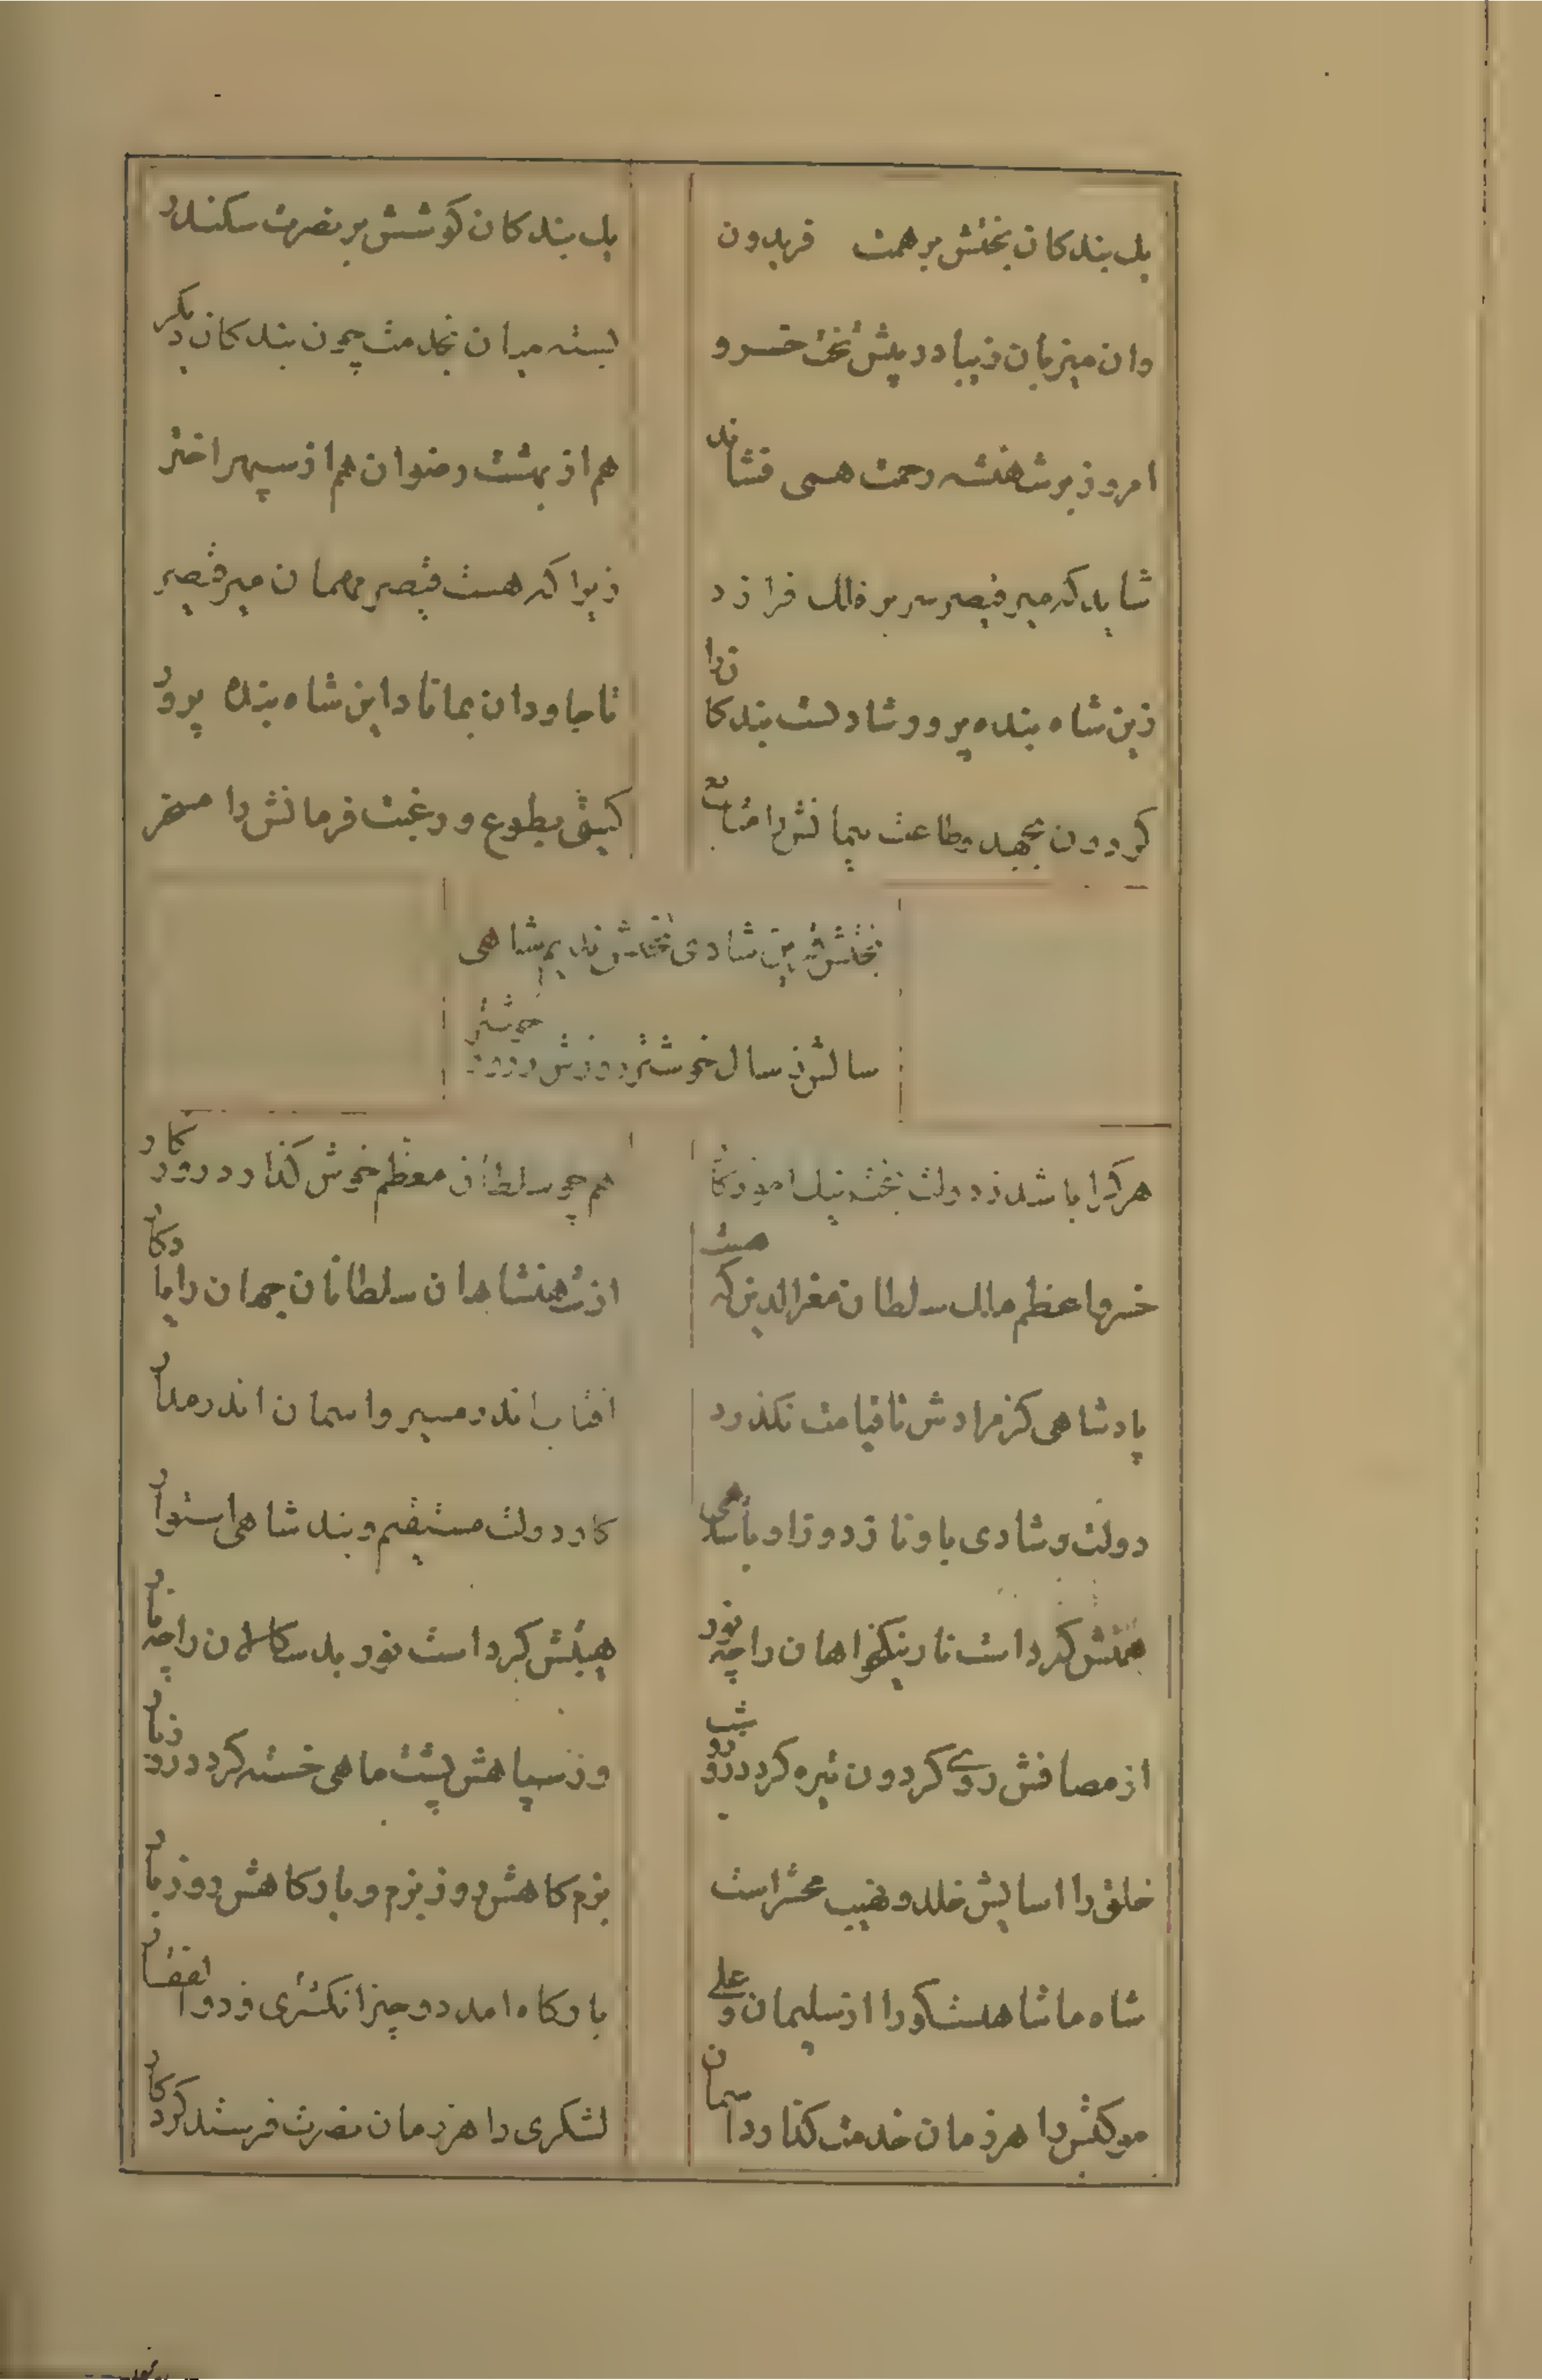 یک بندکان بخشش بر همت فریدون
یک بندکان کوشش بر نصرت سکندر
وان میزبان زیبا در پیش تخت خسرو
بسته میان بخدمت چون بندکان دیکر
امروز بر شاهنشه رحمت همی فشاند
هم از بهشت رضوان هم از سپهر اختر
شاید که میر قیصر سر بر فلک فرازد
زیرا که هست قیصر مهمان میر قیصر
زین شاه بنده پرور شادست بندکانرا
تا جاودان بماناد این شاه بنده پرور
کردون بجهد و طاعت پیمانش را متابع
کیتی بطوع و رغبت فرمانش را مسخر
بختش قرین شادی تختش ندیم شاهی
سالش ز سال خوشتر روزش ز روز خوشتر
هرکرا باشد ز دولت بخت نیک اموزکار
هم چو سلطان معظم خوش کذارد روزکار
خسرو اعظم ملک سلطان معزالدین که هست
از شهنشاهان سلطانان جهان را یادکار
پادشاهی کز مرادش تا قیامت نکذرد
افتاب اندر مسیر و اسمان اندر مدار
دولت و شادی باو نازد و زاو با
کار دولت مستقیم و بند شاهی استوار
همتش کرد است نار نیکخواهان را چو نور
هیبتش کرد است نور بدسکالان را چو نار
از مصافش روی کردون تیره کردد روز شب
وز سپاهش پشت ماهی خسته کردد روز بار
خلق را اسایش خلد و نهیب محشر است
بزم کاهش روز بزم و بارکاهش روز بار
شاه ما شاهست کورا از سلیمان و علی
یادکار امد دو چیز انکشتری و ذوالفقار
موکبش را هر زمان خدمت کذارد اسمان
لشکری را هر زمان نصرت فرستد کردکار